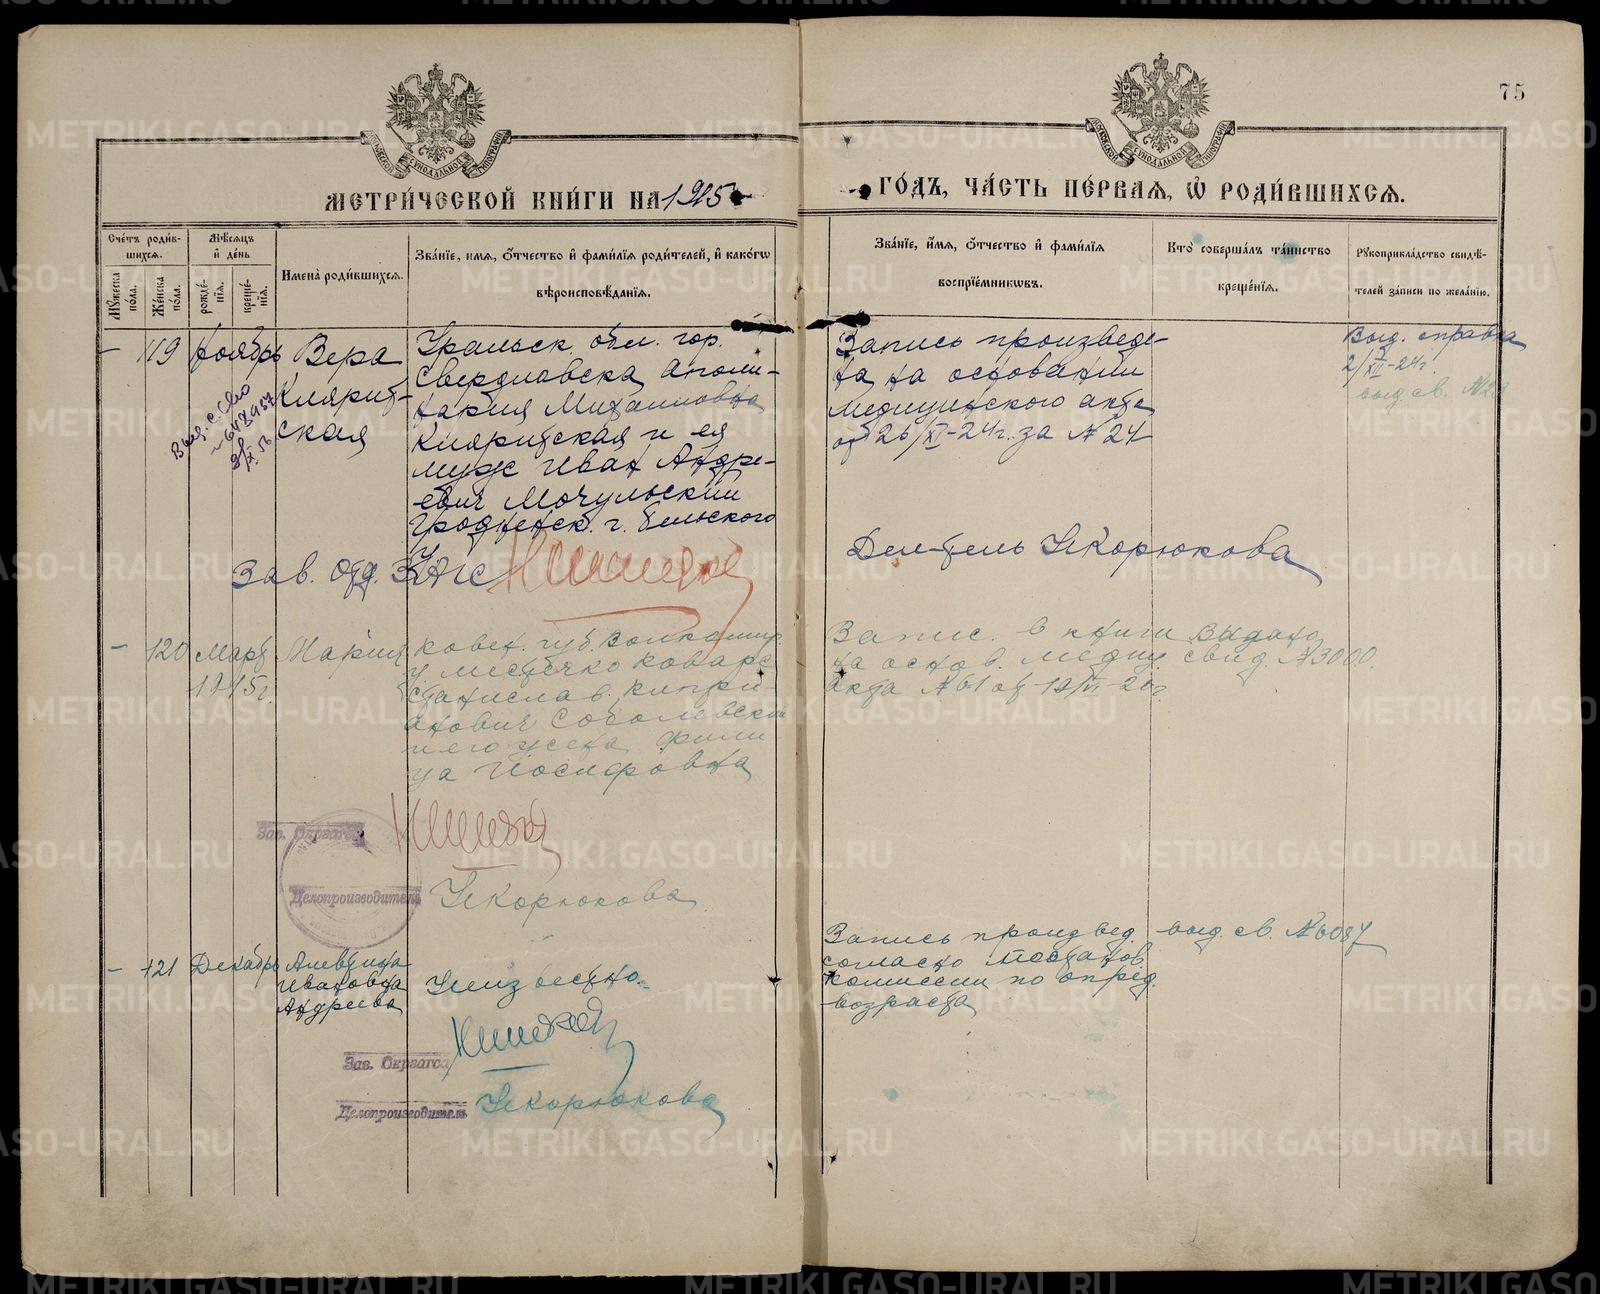 75
МЕТРИ́ЧЕСКОЙ КНИ́ГИ НА 1915
ГО́ДЪ, ЧА́СТЬ ПЕ́РВАЯ, Ѽ РОДИ́ВШИХСЯ.
Сче́тъ роди́в-
шихся.
Мꙋ́жеска по́ла.
Же́нска по́ла.
Мѣ́сяцъ
и҆ де́нь
рожде́-
нїя.
креще́-
нїя.
Имена̀ роди́вшихся.
Зва́нїе, имя, ѻ҆́тчество и҆ фами́лїя роди́телей, и҆ како́гѡ
вѣроисповѣ́данїя.
Зва́нїе, и҆́мя, ѻ҆́тчество и҆ фами́лїя
воспрїе́мникѡвъ.
Кто̀ соверша́лъ та́инство
креще́нїя.
Рꙋкоприкла́дство свидѣ́-
телей за́писи по жела́нїю.
– 119 Ноябрь Вера
ская
Уральск. обл. гор.
Свердловска Аполи-
нария Михаиловна
и ея
муж Иван Андре-
евич Мочульский
Гродненск. г. Бельского
Запись произведе-
на на основании
Медицинского акта
от 26/XI-24г. за № 24
Выд. справка
2/XII-24г.
выд св. №
Зав. отд. ЗАГС
Дел-тель Искорюкова
– 120 Март
1915г.
Мария
Ковен. губ. Вилкомир.
у. местечко Коварс
Станислав. Кипри
анович Соколовский
и его жена Фели
ца Иосифовна
Запис. в книги выдано
на основ. медиц. свид. № 3000.
акта № 61 от
Зав. Окрзагса
Делопроизводитель Искорюкова
– 121 Декабрь Алевтина
Ивановна
Андреева
Неизвестно.
Запись произвед. выд. св. № 6087
согласно постанов.
комиссии по опред.
возраста
Зав. Окрзагса
Делопроизводитель Искорюкова
METRIKI.GASO-URAL.RU